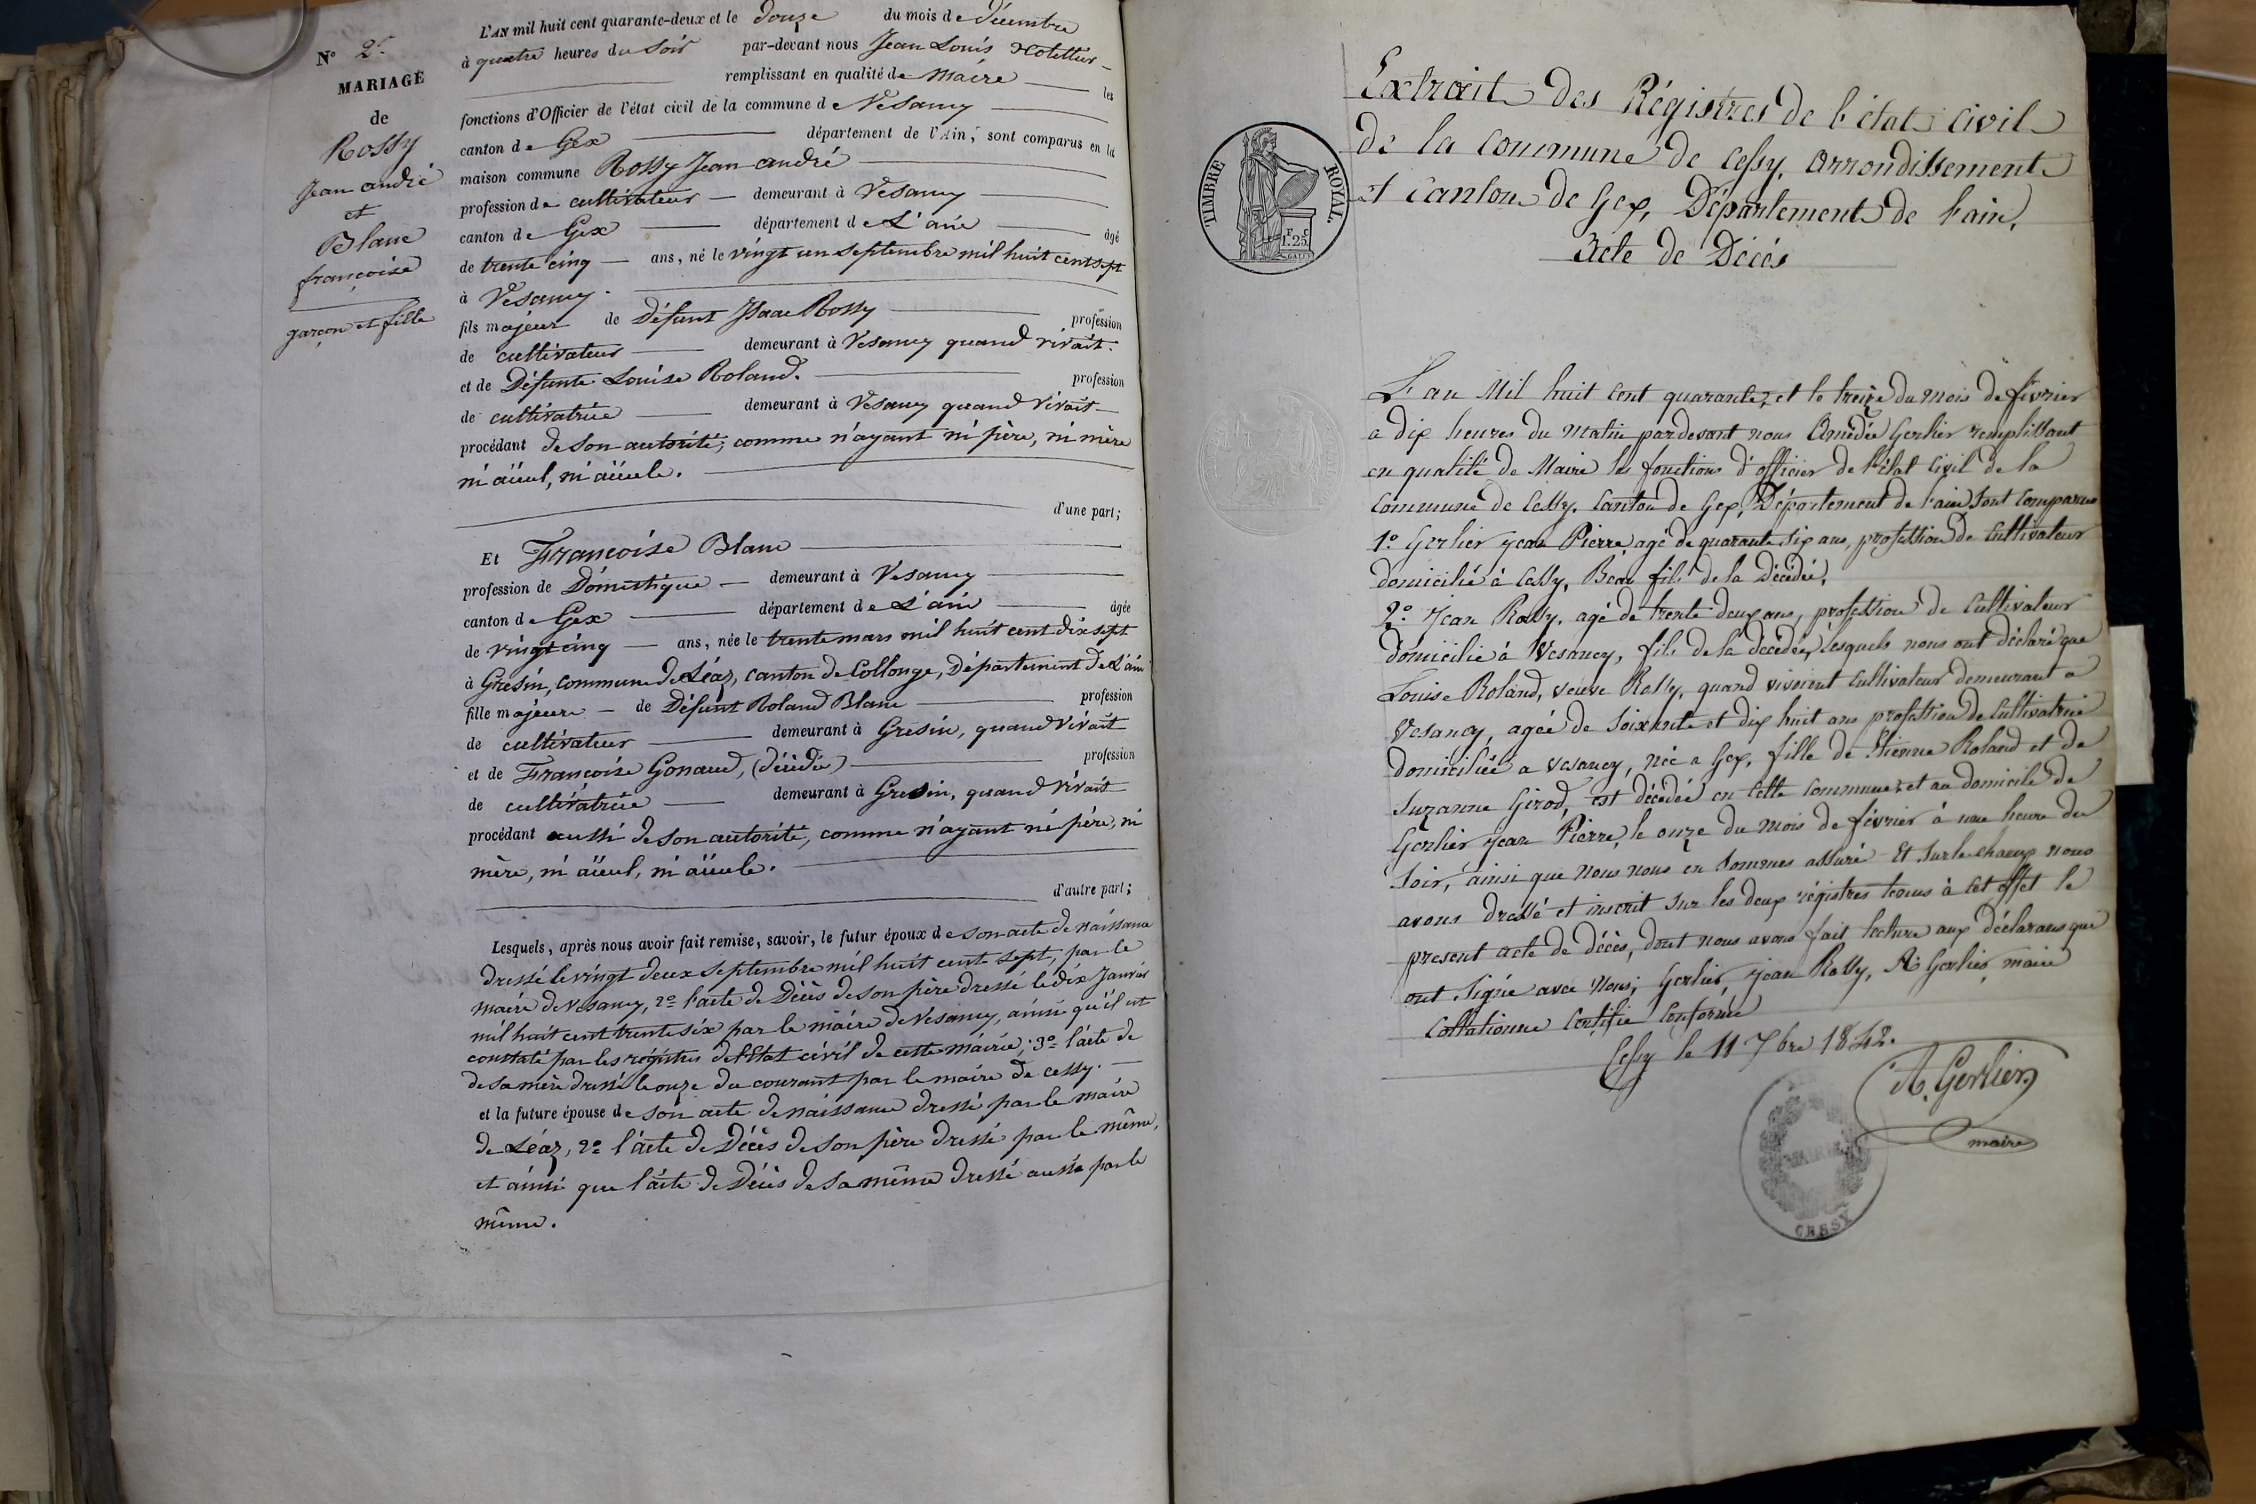 N° 2.
MARIAGE
de
Rossy
Jean andré
et
Blanc
françoise
garçon et fille
L'AN mil huit cent quarante-deux et le douze du mois de décembre
à quatre heures du soir par-devant nous Jean Louis
remplissant en qualité de maire les
fonctions d'Officier de l'état civil de la commune de Vesancy
canton de Gex département de l'Ain, sont comparus en la
maison commune Rossy Jean andré
profession de cultivateur demeurant à Vesancy
canton de Gex département de L'ain âgé
de trente cinq ans, né le vingt un septembre mil huit cent sept
à Vesancy.
fils majeur de Défunt Isaac Rossy profession
de cultivateur demeurant à Vesancy quand vivait.
et de Défunte Louise Roland. profession
de cultivatrice demeurant à Vesancy quand vivait
procédant de son autorité, comme n'ayant ni père, ni mère
ni aïeul, ni aïeule.
d'une part;
Et Françoise Blanc
profession de Domestique demeurant à Vesancy
canton de Gex département de L'ain âgée
de vingt cinq ans, née le trente mars mil huit cent dix sept
à Gresin, commune de Léaz, canton de Collonge, Département de L'ain
fille majeure de Défunt Roland Blanc profession
de cultivateur demeurant à Gresin, quand vivait
et de Françoise Gonaud, (décédée) profession
de cultivatrice demeurant à Gresin, quand vivait
procédant aussi de son autorité, comme n'ayant ni père, ni
mère, ni aïeul, ni aïeule.
d'autre part;
Lesquels, après nous avoir fait remise, savoir, le futur époux de son acte de naissance
dressé le vingt deux septembre mil huit cent sept, par le
maire de Vesancy, 2° l'acte de Décès de son père dressé le dix Janvier
mil huit cent trente six par le maire de Vesancy, ainsi qu'il est
constaté par les registres de l'Etat civil de cette mairie; 3° l'acte de
de sa mère dressé le onze du courant par le maire de cessy.
et la future épouse de son acte de naissance dressé par le maire
de Léaz, 2° l'acte de Décès de son père dressé par le même,
et ainsi que l'acte de Décès de sa même dressé aussi par le
même.
TIMBRE ROYAL
F. C.
1.25
Extrait des Régistres de l'état civil
de la commune de cessy, arrondissement
et canton de Gex, Département de l'ain.
Acte de Décés
L'an Mil huit cent quarante, et le treize du mois de fevrier
a dix heures du matin pardevant nous Amédée Gerlier remplissant
en qualité de Maire les fonctions d'officier de l'état civil de la
commune de Cessy, canton de Gex, Département de l'ain sont comparus
1° Gerlier jean Pierre, agé de quarante six ans, profession de cultivateur
domicilié à Cessy, Beau fils de la décédée,
2° jean Rossy, agé de trente deux ans, profession de cultivateur
domicilié à Vesancy, fils de la décédée, lesquels nous ont déclaré que
Louise Roland, veuve Rossy, quand vivoient cultivateur demeurant a
Vesancy, agée de soixante et dix huit ans profession de cultivatrice
domiciliée a vesancy, née a Gex, fille de Etienne Roland et de
Suzanne Girod, est décédée en cette commune et au domicile de
Gerlier jean Pierre, le onze du mois de février à une heure du
soir, ainsi que nous nous en sommes assuré Et sur le champ nous
avons dressé et inscrit sur les deux régistres tenus à cet effet le
present acte de décès, dont nous avons fait lecture aux déclarans que
ont signé avec nous; Gerlier, jean Rossy, A. Gerlier, maire
Collationné Certifié Conforme
Cessy le 11 7bre 1842.
A. Gerlier
maire
MAIRIE
CESSY